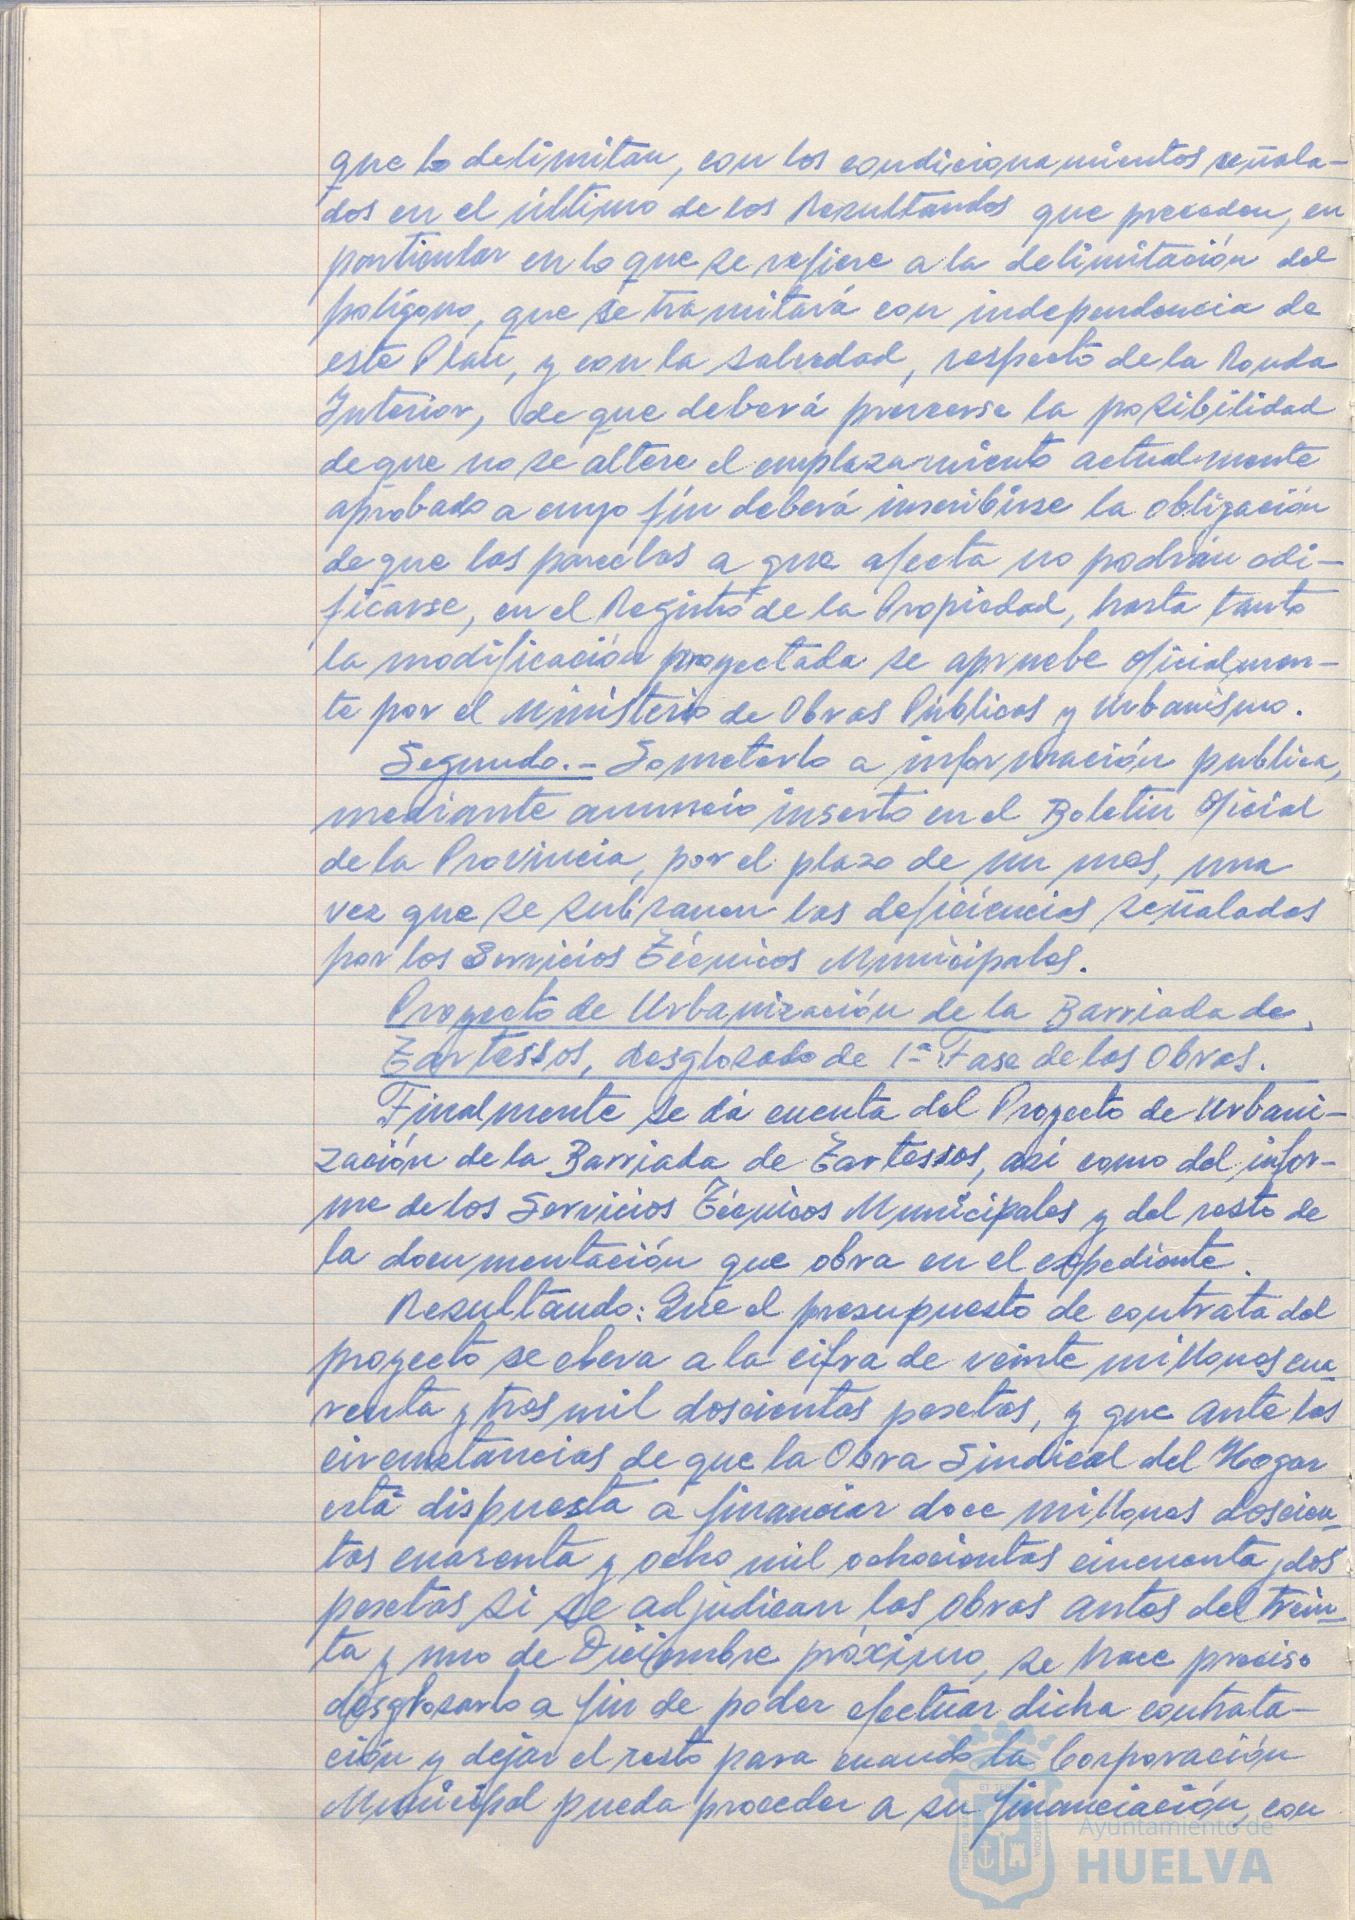 que lo delimitan, con los condicionamientos señala-
dos en el último de los Resultandos que preceden, en
particular en lo que se refiere a la delimitación del
polígono, que se tramitará con independencia de
este Plan, y con la salvedad, respecto de la Ronda
Interior, de que deberá preveerse la posibilidad
de que no se altere el emplazamiento actualmente
aprobado a cuyo fin deberá inscribirse la obligación
de que las parcelas a que afecta no podrán edi-
ficarse, en el Registro de la Propiedad, hasta tanto
la modificación proyectada se apruebe oficialmen-
te por el Ministerio de Obras Públicas y Urbanismo.
Segundo.- Someterlo a información publica,
mediante anuncio inserto en el Boletin Oficial
de la Provincia, por el plazo de un mes, una
vez que se subsanen las deficiencias señaladas
por los Servicios Técnicos Municipales.
Proyecto de Urbanización de la Barriada de
Tartessos, desglosado de 1ª Fase de las Obras.
Finalmente se dá cuenta del Proyecto de Urbani-
zación de la Barriada de Tartessos, asi como del infor-
me de los Servicios Técnicos Municipales y del resto de
la documentación que obra en el expediente.
Resultando: Que el presupuesto de contrata del
proyecto se eleva a la cifra de veinte millones cua-
renta y tres mil doscientas pesetas, y que ante las
circunstancias de que la Obra Sindical del Hogar
está dispuesta a financiar doce millones doscien-
tas cuarenta y ocho mil ochocientas cincuenta y dos
pesetas si se adjudican las obras antes del trein-
ta y uno de Diciembre próximo, se hace preciso
desglosarlo a fin de poder efectuar dicha contrata-
ción y dejar el resto para cuando la Corporación
Municipal pueda proceder a su financiación, con
Ayuntamiento de
HUELVA